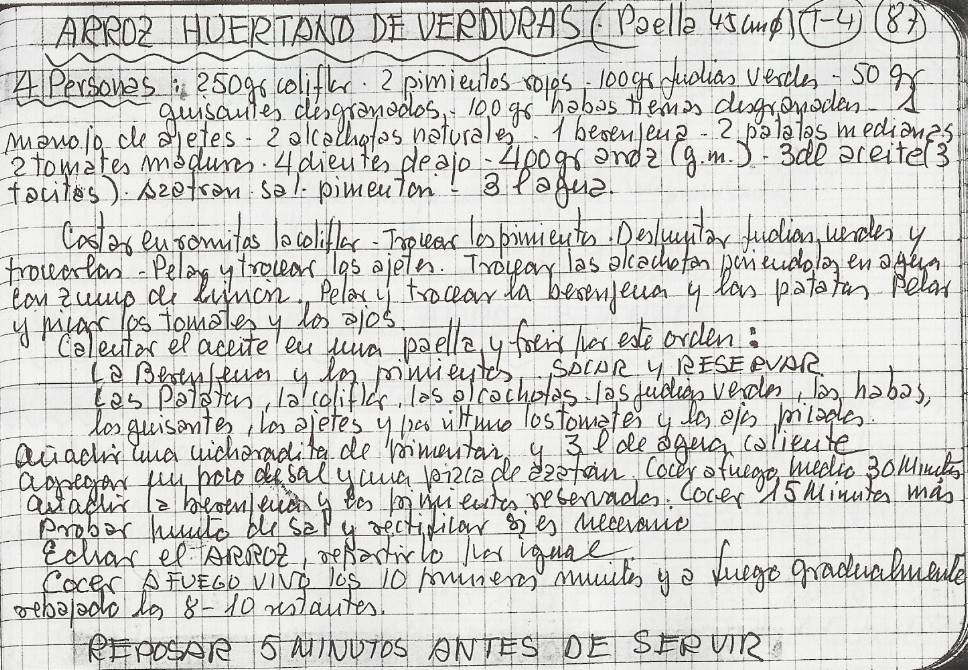 ARROZ HUERTANO DE VERDURAS (Paella 45cmϕ) (T-4) (87)
4 Personas: 250gr coliflor - 2 pimientos rojos - 100gr judias verdes - 50 gr
guisantes desgranados - 100 gr habas tiernas desgranadas - 1
manojo de ajetes - 2 alcachofas naturales - 1 berenjena - 2 patatas medianas
2 tomates maduros - 4 dientes de ajo - 400gr arroz (g.m.) - 3dl aceite (3
tacitas) - azafran - sal - pimenton - 3 l agua.
Cortar en ramitos la coliflor - Trocear los pimientos. Despuntar judias verdes y
trocearlas - Pelar y trocear los ajetes. Trocear las alcachofas poniendolas en agua
con zumo de limón. Pelar y trocear la berenjena y las patatas Pelar
y picar los tomates y los ajos.
Calentar el aceite en una paella, y freir por este orden:
La Berenjena y los pimientos, SACAR y RESERVAR
Las Patatas, la coliflor, las alcachofas, las judias verdes, las habas,
los guisantes, los ajetes y por ultimo los tomates y los ajos picados.
Añadir una cucharadita de pimenton y 3 l de agua caliente
agregar un poco de sal y una pizca de azafrán. Cocer a fuego medio 30 Minutos
añadir la berenjena y los pimientos reservados. Cocer 15 Minutos más
Probar punto de sal y rectificar si es necesario
Echar el ARROZ, repartirlo por igual
Cocer A FUEGO VIVO los 10 primeros minutos y a fuego gradualmente
rebajado los 8-10 restantes.
REPOSAR 5 MINUTOS ANTES DE SERVIR